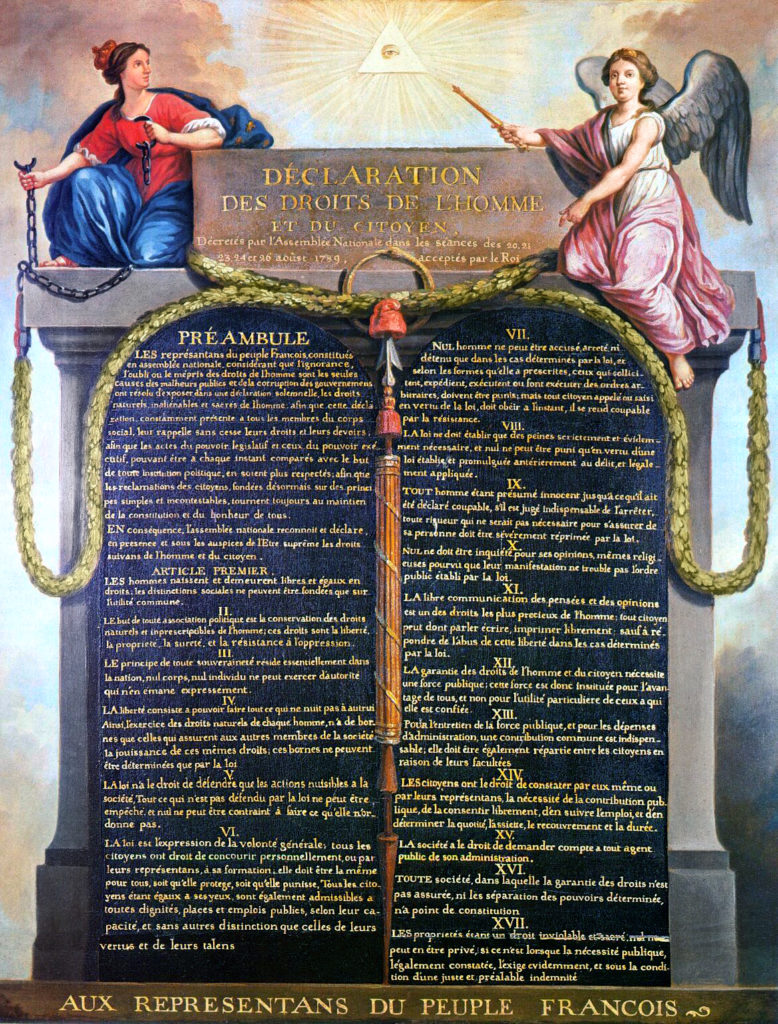 DÉCLARATION
DES DROITS DE L'HOMME
ET DU CITOYEN,
Décretés par l'Assemblée Nationale dans les séances des 20. 21
23. 24 et 26 aoûst 1789, acceptés par le Roi
PRÉAMBULE
LES représantans du peuple Francois, constitués
en assemblée nationale, considérant que l'ignorance,
l'oubli ou le mépris des droits de l'homme sont les seules
causes des malheurs publics et de la corruption des gouvernemens
ont résolu d'exposer dans une déclaration solemnelle, les droits
naturels, inaliénables et sacrés de l'homme: afin que cette décla
ration, constamment présente à tous les membres du corps
social, leur rappelle sans cesse leurs droits et leurs devoirs:
afin que les actes du pouvoir législatif et ceux du pouvoir exé
cutif, pouvant être à chaque instant comparés avec le but
de toute institution politique, en soient plus respectés; afin que
les reclamations des citoyens, fondées désormais sur des princi
pes simples et incontestables, tournent toujours au maintien
de la constitution et du bonheur de tous.
EN conséquence, l'assemblée nationale reconnoit et déclare,
en presence et sous les auspices de l'Etre suprême les droits
suivans de l'homme et du citoyen.
ARTICLE PREMIER.
LES hommes naissent et demeurent libres et égaux en
droits. les distinctions sociales ne peuvent être fondées que sur
l'utilité commune.
II.
LE but de toute association politique est la conservation des droits
naturels et inprescripibles de l'homme; ces droits sont la liberté,
la propriété, la sureté, et la résistance à l'oppression.
III.
LE principe de toute souveraineté réside essentiellement dans
la nation, nul corps, nul individu ne peut exercer d'autorité
qui n'en émane expressement.
IV.
LA liberté consiste a pouvoir faire tout ce qui ne nuit pas à autrui
Ainsi, l'exercice des droits naturels de chaque homme, n'a de bor
nes que celles qui assurent aux autres membres de la société
la jouissance de ces mêmes droits; ces bornes ne peuvent
être déterminées que par la loi
V.
LA loi n'a le droit de défendre que les actions nuisibles à la
société, Tout ce qui n'est pas défendu par la loi ne peut être
empêche, et nul ne peut être contraint à faire ce qu'elle n'or-
donne pas.
VI.
LA loi est l'expression de la volonté générale; tous les
citoyens ont droit de concourir personnellement, ou par
leurs représentans, à sa formation; elle doit être la même
pour tous, soit qu'elle protege, soit qu'elle punisse, Tous les cito-
yens étant égaux à ses yeux, sont également admissibles a
toutes dignités, places et emplois publics, selon leur ca-
pacité, et sans autres distinction que celles de leurs
vertus et de leurs talens
VII.
NUL homme ne peut être accusé, arreté, ni
détenu que dans les cas déterminés par la loi, et
selon les formes qu'elle a prescrites, ceux qui sollici-
tent, expédient, exécutent ou font exécuter des ordres ar-
bitraires, doivent être punis; mais tout citoyen appelé ou saisi
en vertu de la loi, doit obéir a l'instant, il se rend coupable
par la résistance.
VIII.
LA loi ne doit établir que des peines strictement et évidem-
ment nécessaire, et nul ne peut être puni qu'en vertu d'une
loi établie, et promulguée antérierement au délit, et légale-
ment appliquée.
IX.
TOUT homme étant présumé innocent jusqu'a ce qu'il ait
été déclaré coupable, s'il est jugé indispensable de l'arrêter,
toute rigueur qui ne serait pas nécessaire pour s'assurer de
sa personne doit être sévèrement réprimée par la loi.
X.
NUL ne doit être inquiété pour ses opinions, mêmes religi-
euses pourvu que leur manifestation ne trouble pas l'ordre
public établi par la loi.
XI.
LA libre communication des pensées et des opinions
est un des droits les plus precieux de l'homme: tout citoyen
peut dont parler écrire, imprimer librement: sauf à ré-
pondre de l'abus de cette liberté dans les cas déterminés
par la loi.
XII.
LA garantie des droits de l'homme et du citoyen nécessite
une force publique; cette force est donc instituée pour l'avan-
tage de tous, et non pour l'utilité particuliere de ceux a qui
elle est confiée.
XIII.
POUR l'entretien de la force publique, et pour les dépenses
d'administration, une contribution commune est indispen-
sable; elle doit être également répartie entre les citoyens en
raison de leurs facultées
XIV.
LES citoyens ont le droit de constater par eux même ou
par leurs représentans, la nécessité de la contribution pub-
lique, de la consentir librement, d'en suivre l'emploi, et d'en
déterminer la quotité, l'assiette, le recouvrement et la durée.
XV.
LA société a le droit de demander compte a tout agent
public de son administration.
XVI.
TOUTE société, dans laquelle la garantie des droits n'est
pas assurée, ni les séparation des pouvoirs déterminée,
n'a point de constitution
XVII.
LES proprietés étant un droit inviolable et sacré, nul ne
peut en être privé, si ce n'est lorsque la nécessité publique,
légalement constatée, l'exige evidemment, et sous la condi-
tion d'une juste et préalable indemnité
AUX REPRESENTANS DU PEUPLE FRANCOIS